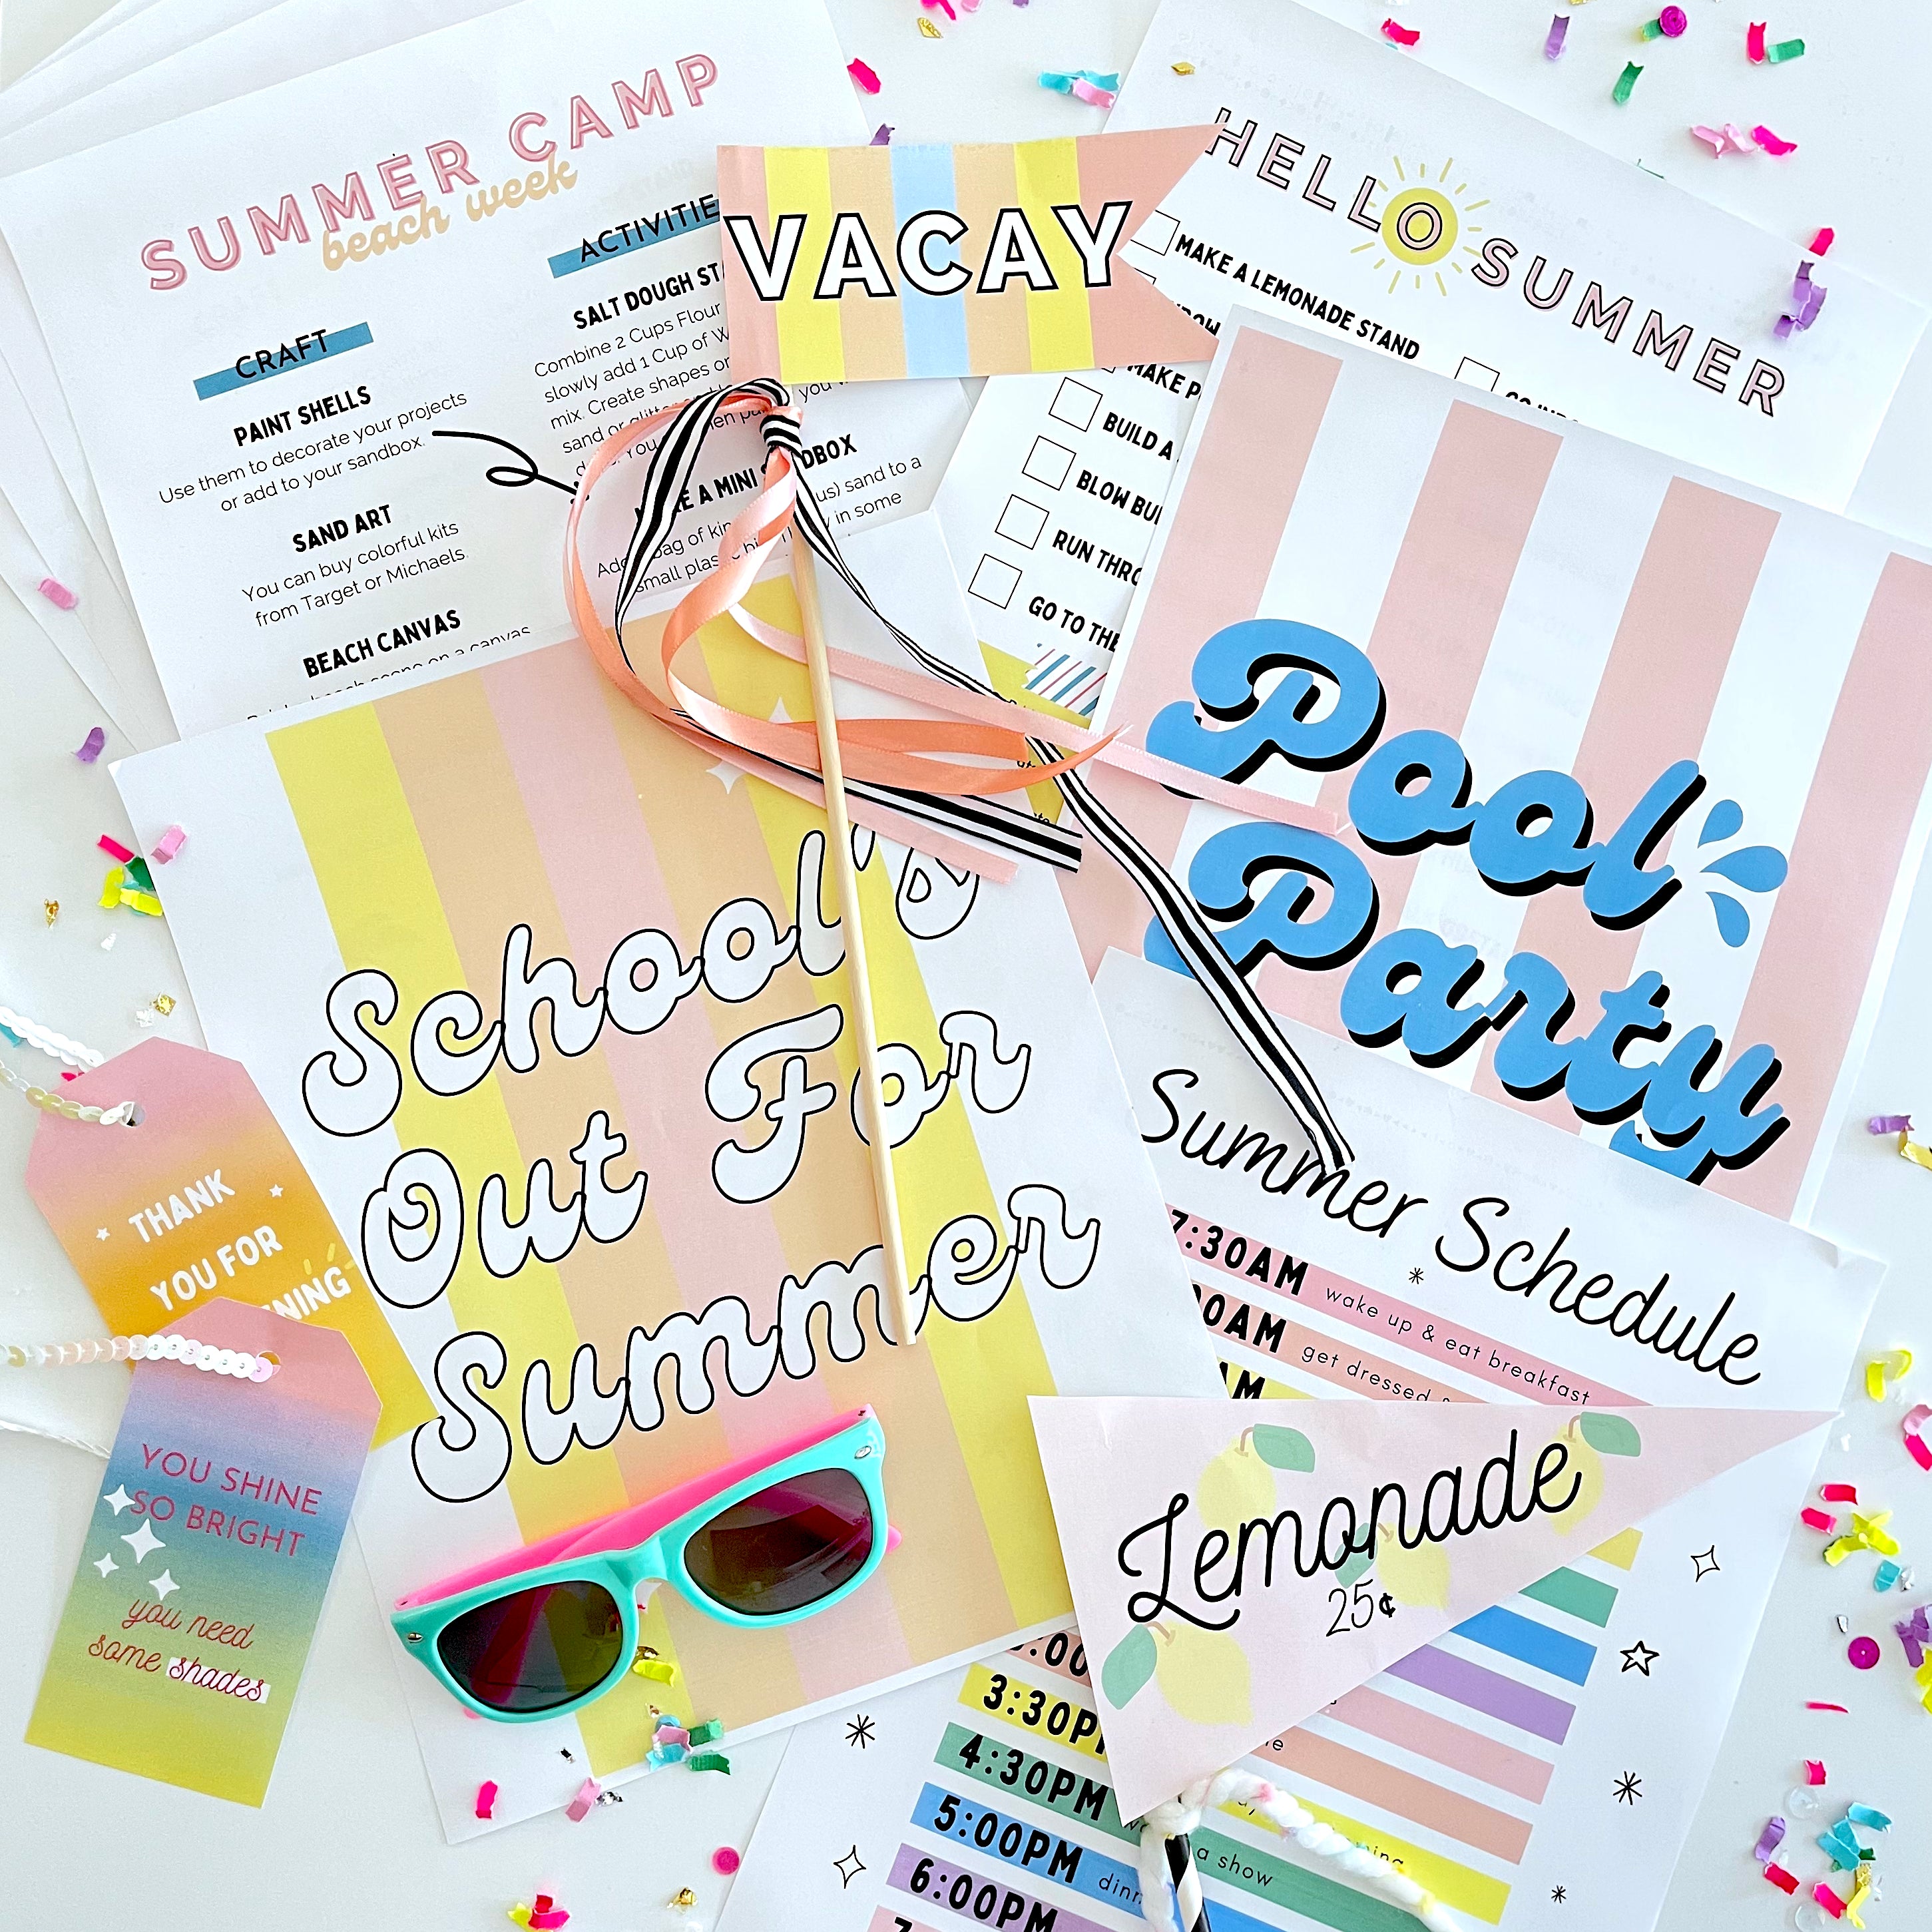 SUMMER CAMP
beach week
CRAFT
PAINT SHELLS
Use them to decorate your projects
or add to your sandbox.
SAND ART
You can buy colorful kits
from Target or Michaels.
BEACH CANVAS
beach scene on a canvas
ACTIVITIE
SALT DOUGH ST
Combine 2 Cups Flour
slowly add 1 Cup of W
mix. Create shapes or
sand or glitter
A MINI
DBOX
us) sand to a
bag of
in some
small
VACAY
HELLO SUMMER
MAKE A LEMONADE STAND
MAKE P
BUILD A
BLOW BU
RUN THRO
GO TO THE
Pool
Party
School's
Out For
Summer
THANK
YOU FOR
NING
YOU SHINE
SO BRIGHT
you need
some shades
Summer Schedule
7:30AM wake up & eat breakfast
0AM get dressed &
AM
Lemonade
25¢
:00
3:30P
4:30PM
a show
5:00PM dinn
6:00PM